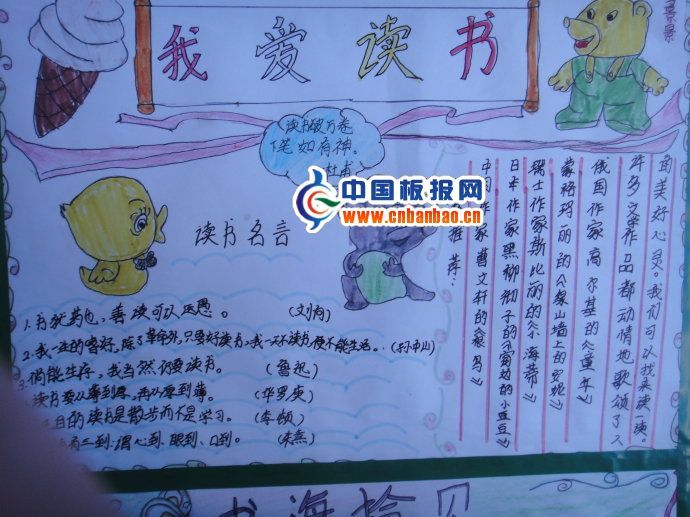 我爱读书
读书破万卷
下笔如有神。
杜甫
中国板报网
www.cnbanbao.cn
读书名言
1.书犹药也,善读可以医愚。(刘向)
2.我一生的嗜好,除了革命外,只要好读书,我一天不读书,便不能生活。(孙中山)
3.倘能生存,我当然仍要读书。(鲁迅)
读书要从薄到厚,再从厚到薄。(华罗庚)
目的读书是散步而不是学习。(李顿)
有三到:谓心到、眼到、口到。(朱熹)
面美好心灵。我们可以找来读一读。
许多文学作品都动情地歌颂了人
俄国作家高尔基的《童年》
蒙格玛丽的《绿山墙上的安妮》
瑞士作家斯比丽的《小海蒂》
日本作家黑柳彻子的《窗边的小豆豆》
中国作家曹文轩的《
推荐:
书海拾贝